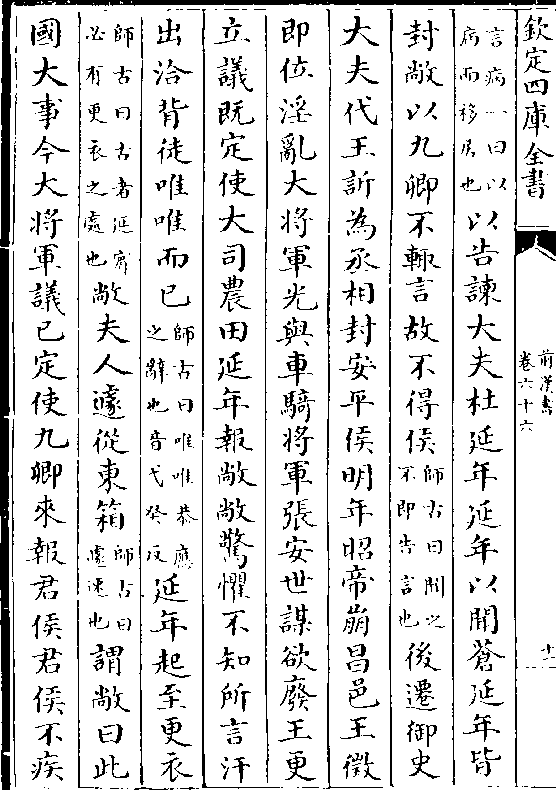 欽定四庫全書
前漢書
卷六十六
十一
言病一曰以
病而移居也以告諫大夫杜延年延年以聞蒼延年皆
封敞以九卿不輒言故不得侯師古曰聞之
不即告言也後遷御史
大夫代王訢為丞相封安平侯明年昭帝崩昌邑王徵
即位淫亂大將軍光與車騎將軍張安世謀欲廢王更
立議既定使大司農田延年報敞敞驚懼不知所言汗
出洽背徒唯唯而已師古曰唯唯恭應
之辭也音弋癸反延年起至更衣
師古曰古者延賓
必有更衣之處也敞夫人遽從東箱師古曰
遽速也謂敞曰此
國大事今大將軍議已定使九卿來報君侯君侯不疾